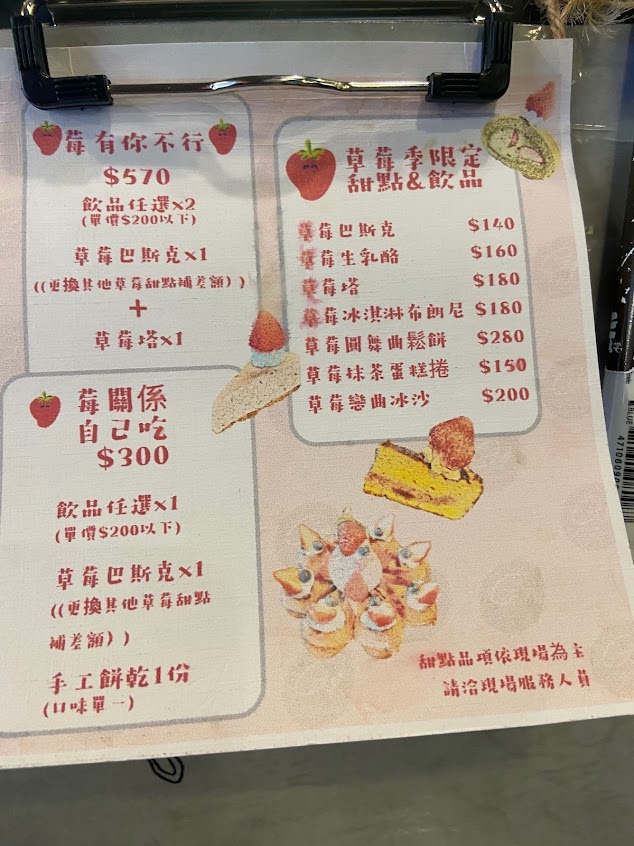 莓有你不行
$570
飲品任選x2
(單價$200以下)
草莓巴斯克x1
((更換其他草莓甜點補差額))
+
草莓塔x1
莓關係
自己吃
$300
飲品任選x1
(單價$200以下)
草莓巴斯克x1
((更換其他草莓甜點
補差額))
手工餅乾1份
(口味單一)
草莓季限定
甜點&飲品
草莓巴斯克 $140
草莓生乳酪 $160
草莓塔 $180
草莓冰淇淋布朗尼 $180
草莓圓舞曲鬆餅 $280
草莓抹茶蛋糕捲 $150
草莓戀曲冰沙 $200
甜點品項依現場為主
請洽現場服務人員
BLUE